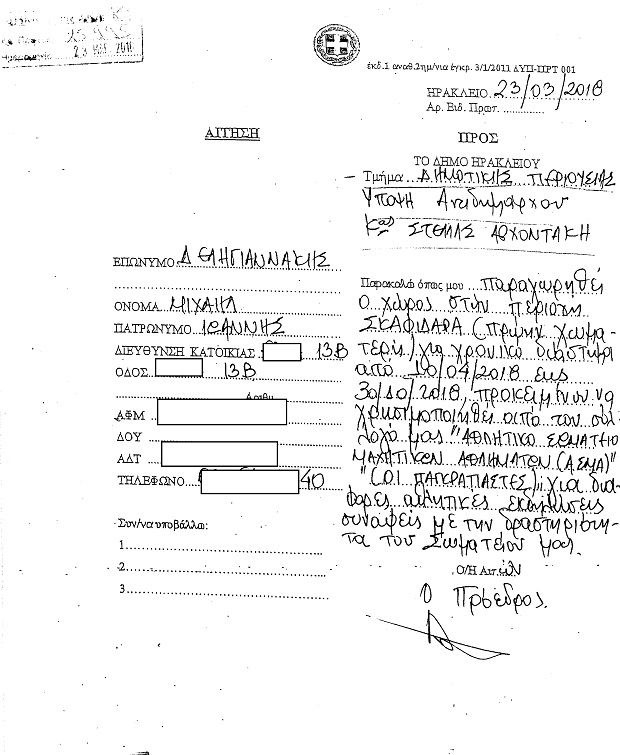 23 ΜΑΡ. 2018
έκδ.1 αναθ.2ημ/νια έγκρ. 3/1/2011 ΔΥΠ-ΠΡΤ 001
ΗΡΑΚΛΕΙΟ 23/03/2018
Αρ. Ειδ. Πρωτ. ..............
ΑΙΤΗΣΗ
ΠΡΟΣ
ΤΟ ΔΗΜΟ ΗΡΑΚΛΕΙΟΥ
Τμήμα ΔΗΜΟΤΙΚΗΣ ΠΕΡΙΟΥΣΙΑΣ
Υποψη Αντιδημαρχου
Κας ΣΤΕΛΛΑΣ ΑΡΧΟΝΤΑΚΗ
ΕΠΩΝΥΜΟ ΔΕΛΗΓΙΑΝΝΑΚΗΣ
ΟΝΟΜΑ ΜΙΧΑΗΛ
ΠΑΤΡΩΝΥΜΟ ΙΩΑΝΝΗΣ
ΔΙΕΥΘΥΝΣΗ ΚΑΤΟΙΚΙΑΣ 13Β
ΟΔΟΣ 13Β
ΑΦΜ
ΔΟΥ
ΑΔΤ
ΤΗΛΕΦΩΝΟ 40
Συν/να υποβάλλω:
1
2
3
Παρακαλώ όπως μου παραχωρηθεί
ο χώρος στην περιοχη
ΣΚΑΦΙΔΑΡΑ (πρώην χωμα-
τερή) για χρονικό διαστημα
από 10/04/2018 εως
30/10/2018, προκειμενου να
χρησιμοποιηθεί από τον συλ-
λογο μας "ΑΘΛΗΤΙΚΟ ΣΩΜΑΤΕΙΟ
ΜΑΧΗΤΙΚΩΝ ΑΘΛΗΜΑΤΩΝ (ΑΣΜΑ)"
"(ΟΙ ΠΑΓΚΡΑΤΙΑΣΤΕΣ)" για δια-
φορες αθλητικές εκδηλώσεις
συναφείς με την δραστηριότη-
τα του Σωματειου μας.
Ο/Η Αιτών
Ο Πρόεδρος.